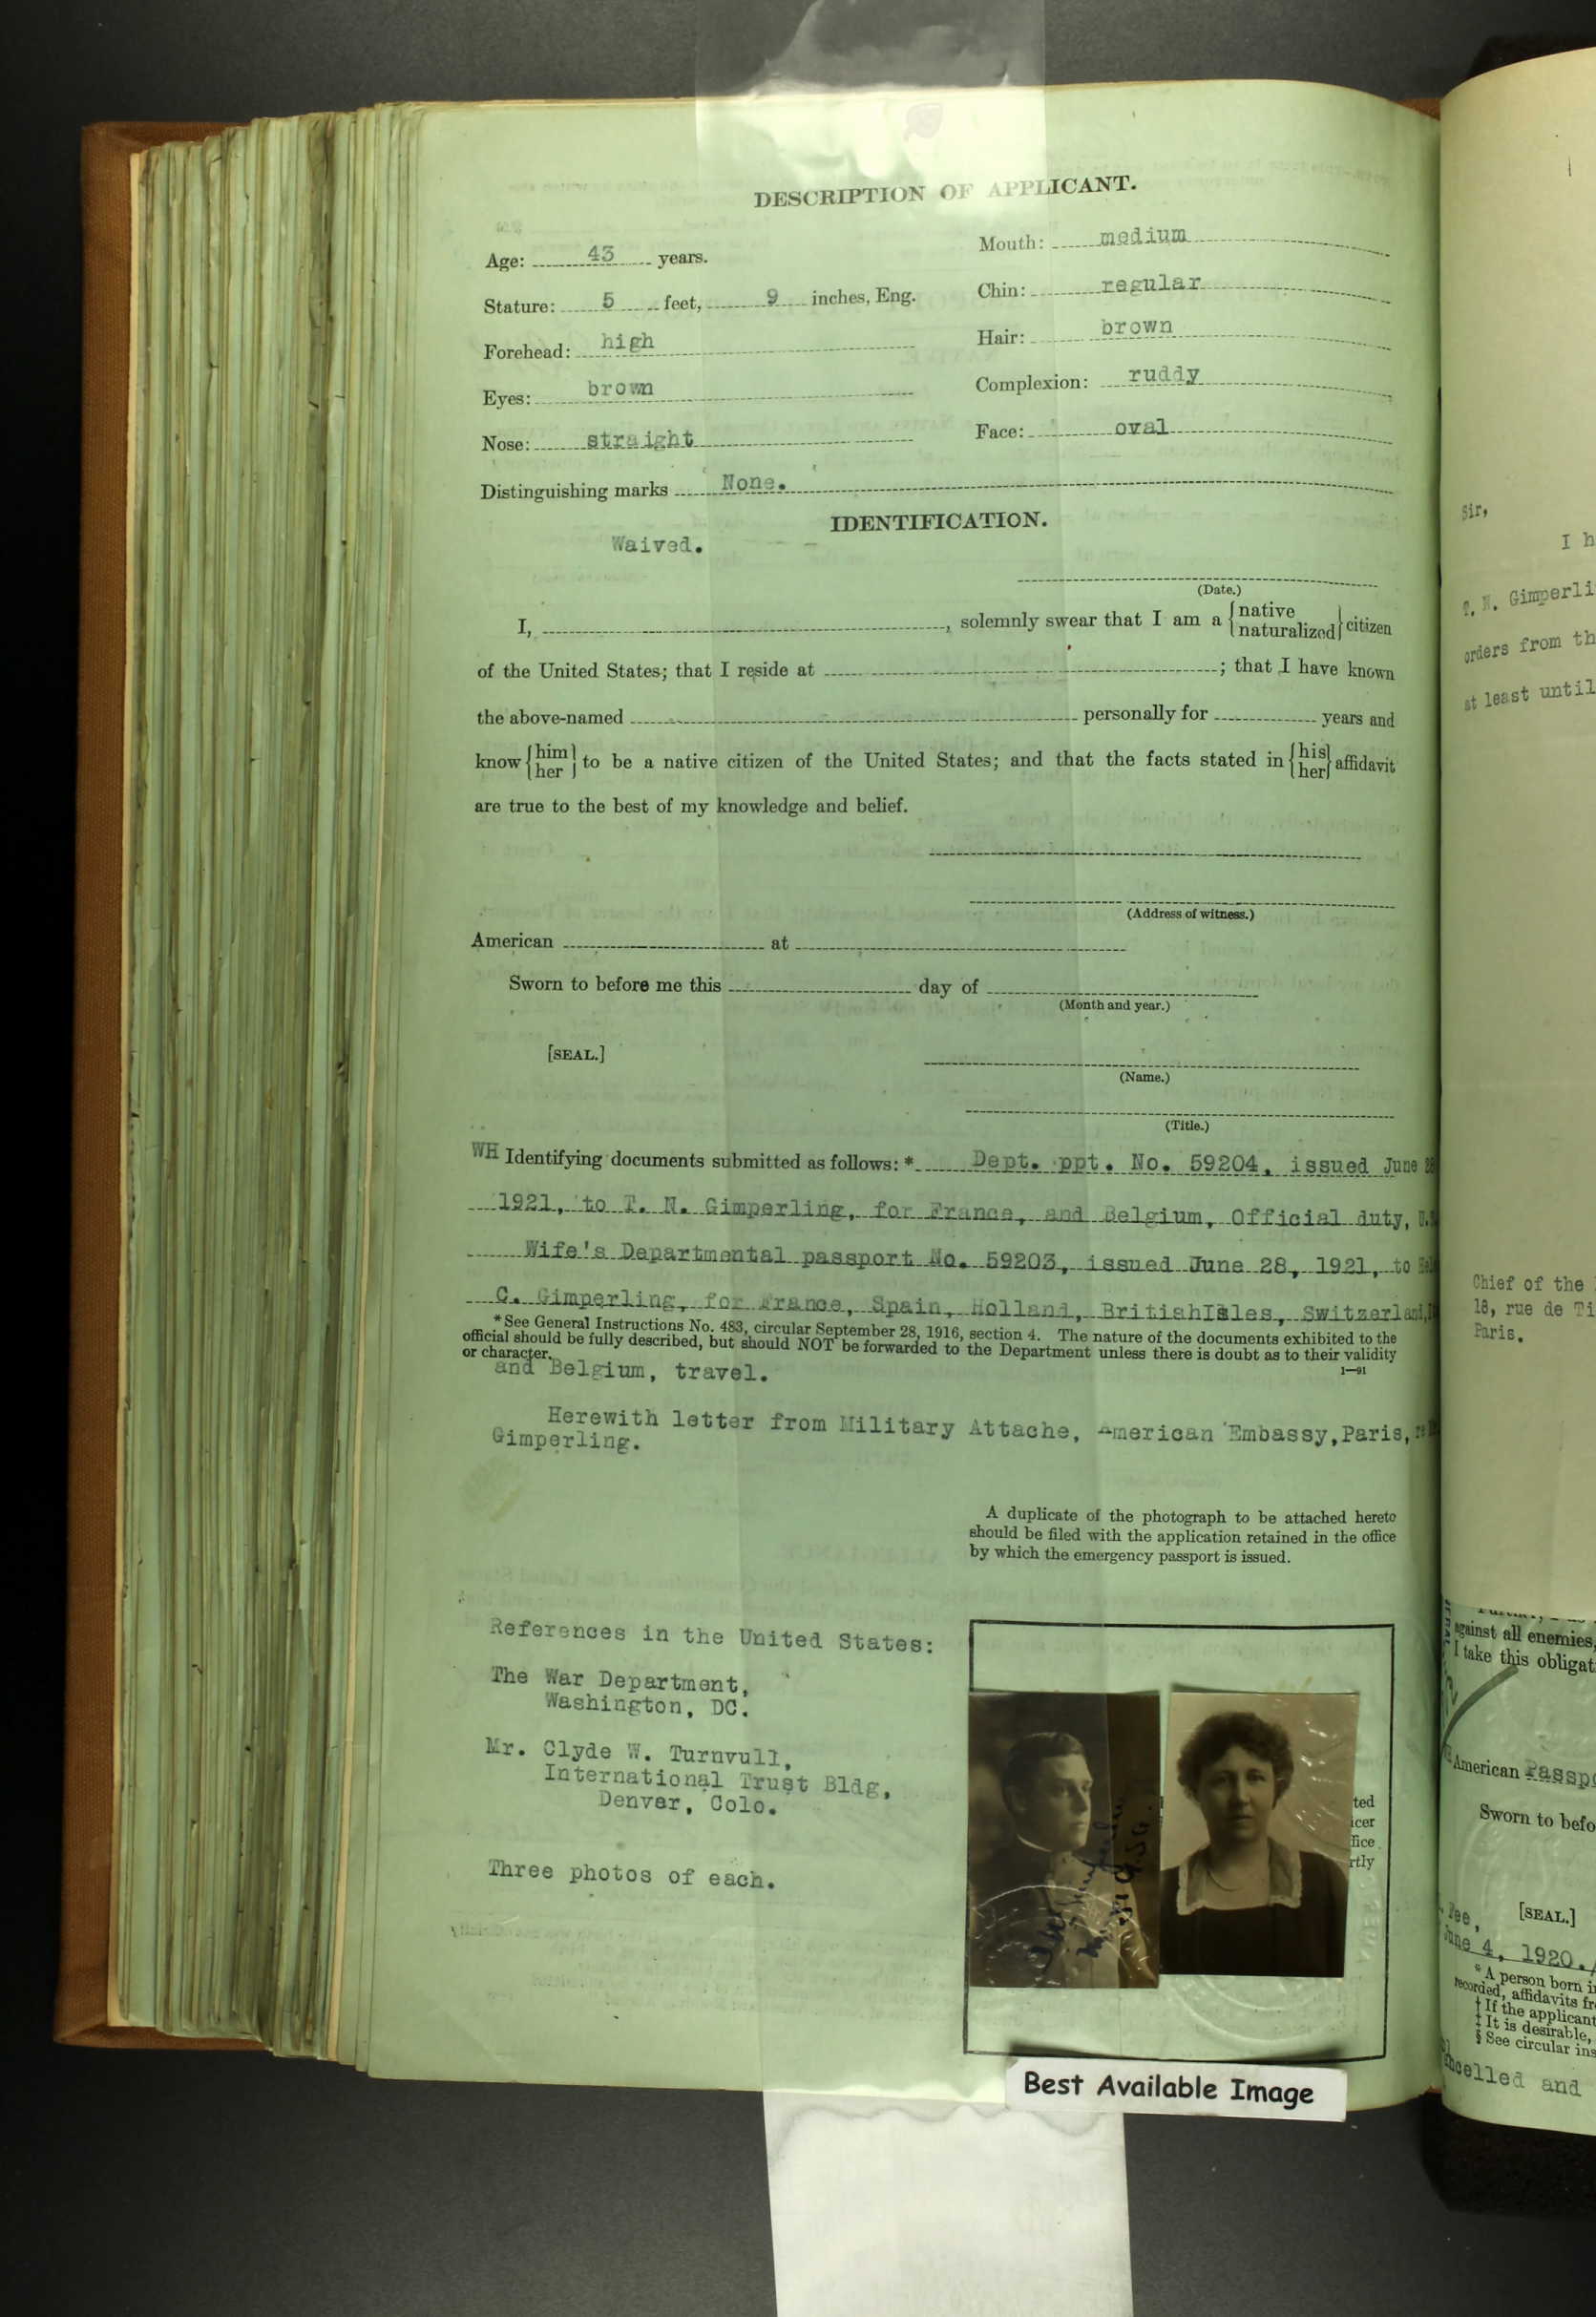 DESCRIPTION OF APPLICANT.
Age: 43 years.
Stature: 5 feet, 9 inches, Eng.
Forehead: high
Eyes: brown
Nose: straight
Mouth: medium
Chin: regular
Hair: brown
Complexion: ruddy
Face: oval
Distinguishing marks None.
IDENTIFICATION.
Waived.
(Date.)
I, , solemnly swear that I am a {native naturalized} citizen
of the United States; that I reside at ; that I have known
the above-named personally for years and
know {him her} to be a native citizen of the United States; and that the facts stated in {his her} affidavit
are true to the best of my knowledge and belief.
(Address of witness.)
American at
Sworn to before me this day of
(Month and year.)
[SEAL.]
(Name.)
(Title.)
WH Identifying documents submitted as follows: * Dept. ppt. No. 59204, issued June
1921, to T. N. Gimperling, for France, and Belgium, Official duty,
Wife's Departmental passport No. 59203, issued June 28, 1921, to
C. Gimperling, for France, Spain, Holland, BritishIsles, Switzerland,
*See General Instructions No. 483, circular September 28, 1916, section 4. The nature of the documents exhibited to the
official should be fully described, but should NOT be forwarded to the Department unless there is doubt as to their validity
or character.
1—91
and Belgium, travel.
Herewith letter from Military Attache, American Embassy,Paris,
Gimperling.
A duplicate of the photograph to be attached hereto
should be filed with the application retained in the office
by which the emergency passport is issued.
References in the United States:
The War Department,
Washington, DC.
Mr. Clyde W. Turnvull,
International Trust Bldg,
Denver, Colo.
Three photos of each.
ted
icer
fice
rtly
Best Available Image
Sir,
I h
T. N. Gimperli
orders from th
at least until
Chief of the
18, rue de Ti
Paris.
against all enemies,
I take this obligat
American Passp
Sworn to befo
[SEAL.]
Fee,
June 4, 1920.
* A person born i
recorded, affidavits fr
† If the applicant
‡ It is desirable,
§ See circular ins
celled and